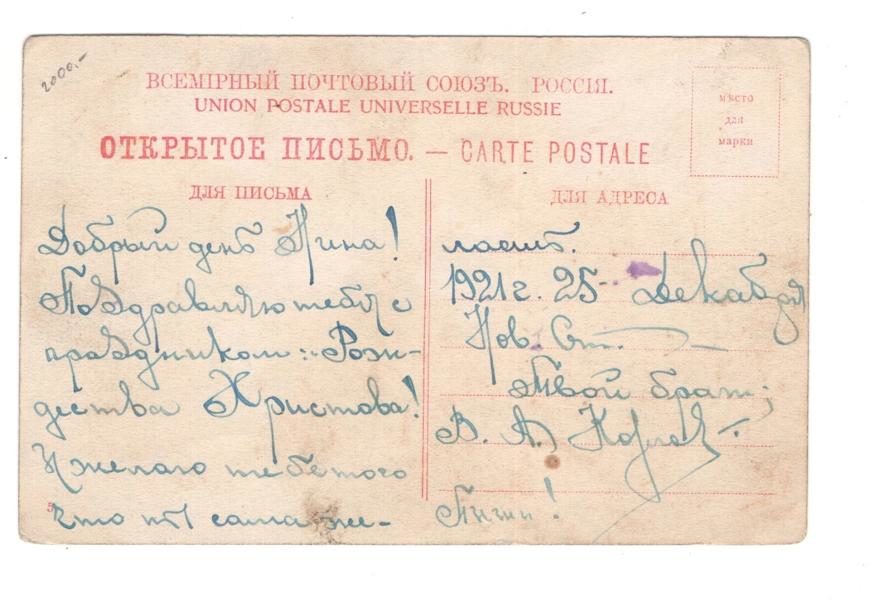 2000.-
ВСЕМІРНЫЙ ПОЧТОВЫЙ СОЮЗЪ. РОССІЯ.
UNION POSTALE UNIVERSELLE RUSSIE
ОТКРЫТОЕ ПИСЬМО. — CARTE POSTALE
мѣсто
для
марки
ДЛЯ ПИСЬМА
Добрый день Нина!
Поздравляю тебя с
праздником: Рож-
дества Христова!
И желаю тебе того
что ты сама же-
ДЛЯ АДРЕСА
лаешь.
1921 г. 25 Декабря
Нов. Ст.
Твой брат;
В. А.
Пиши!